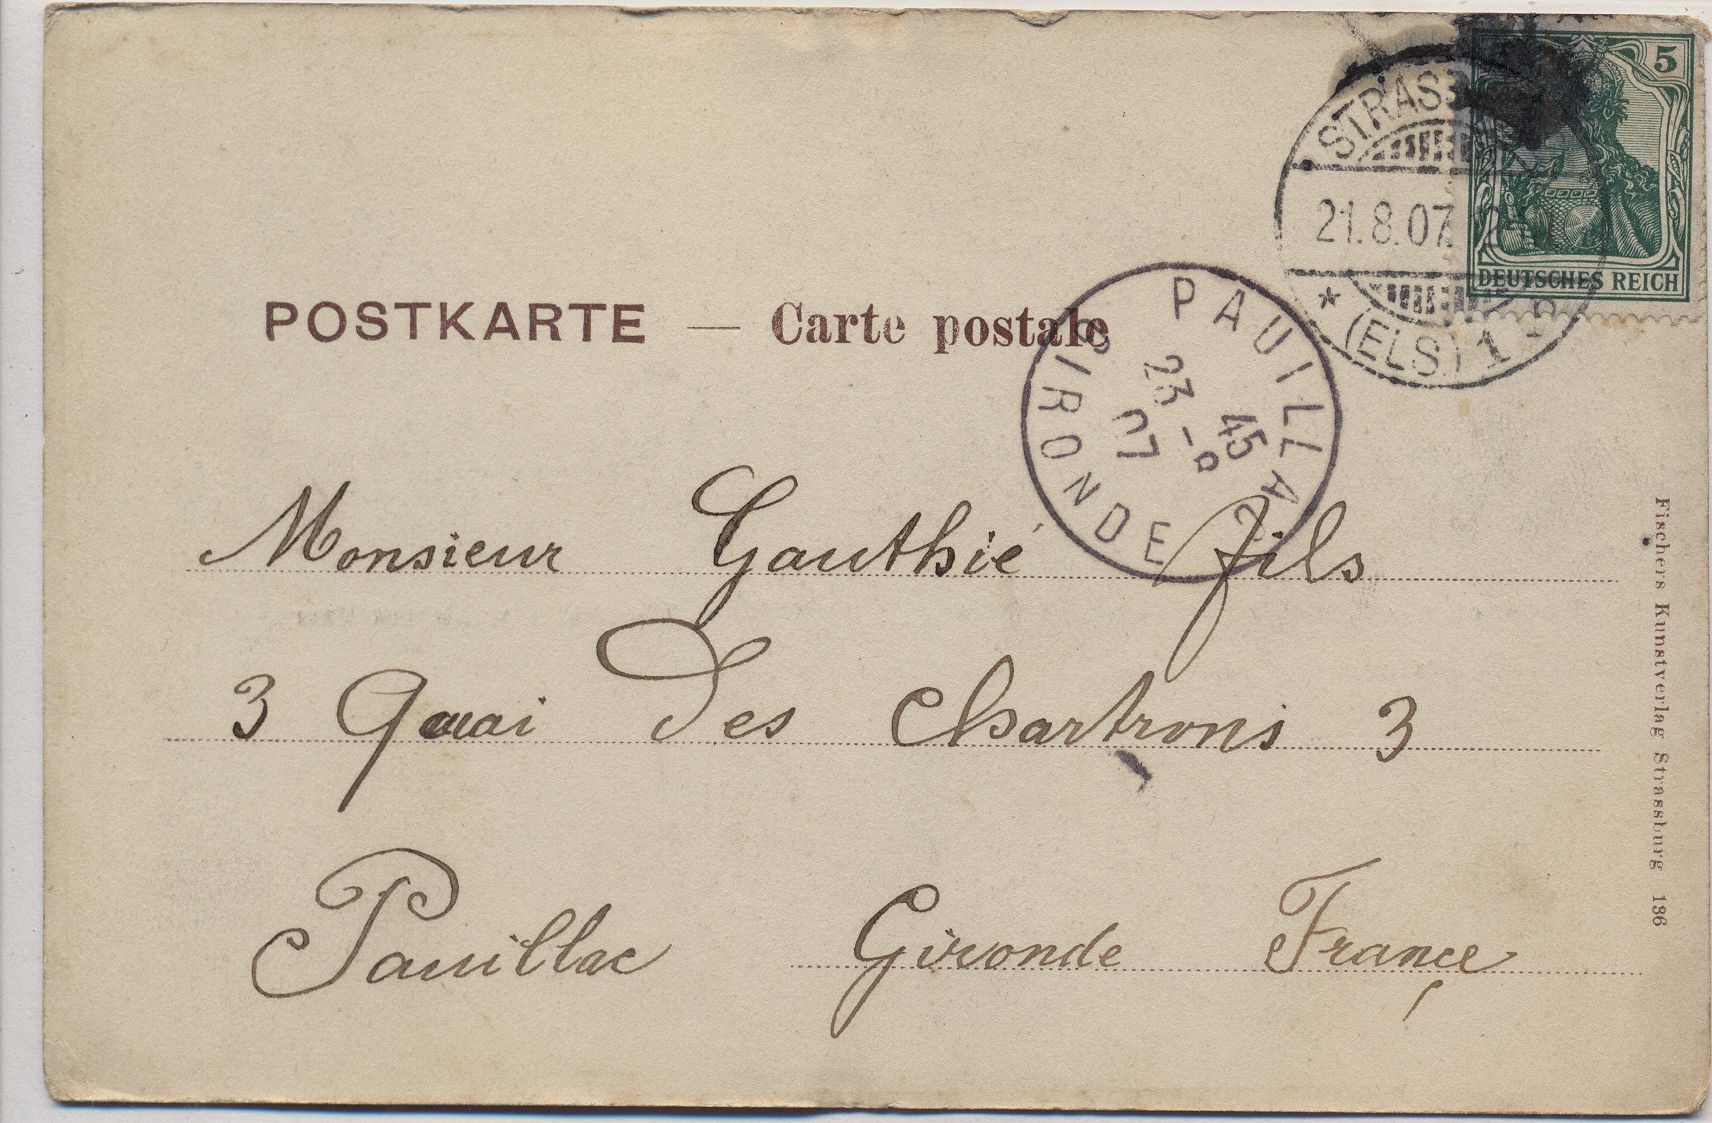 5
DEUTSCHES REICH
21.8.07
* (ELS) 1
POSTKARTE — Carte postale
PAUILLAC
23 -8 45
07
GIRONDE
Monsieur Gauthié fils
3 Quai des Chartrons 3
Pauillac Gironde Françe
Fischers Kunstverlag Strassburg 136